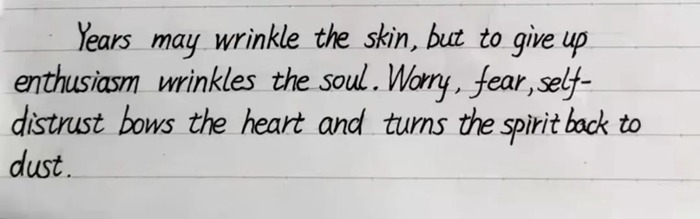 Years may wrinkle the skin, but to give up
enthusiasm wrinkles the soul. Worry, fear, self-
distrust bows the heart and turns the spirit back to
dust.